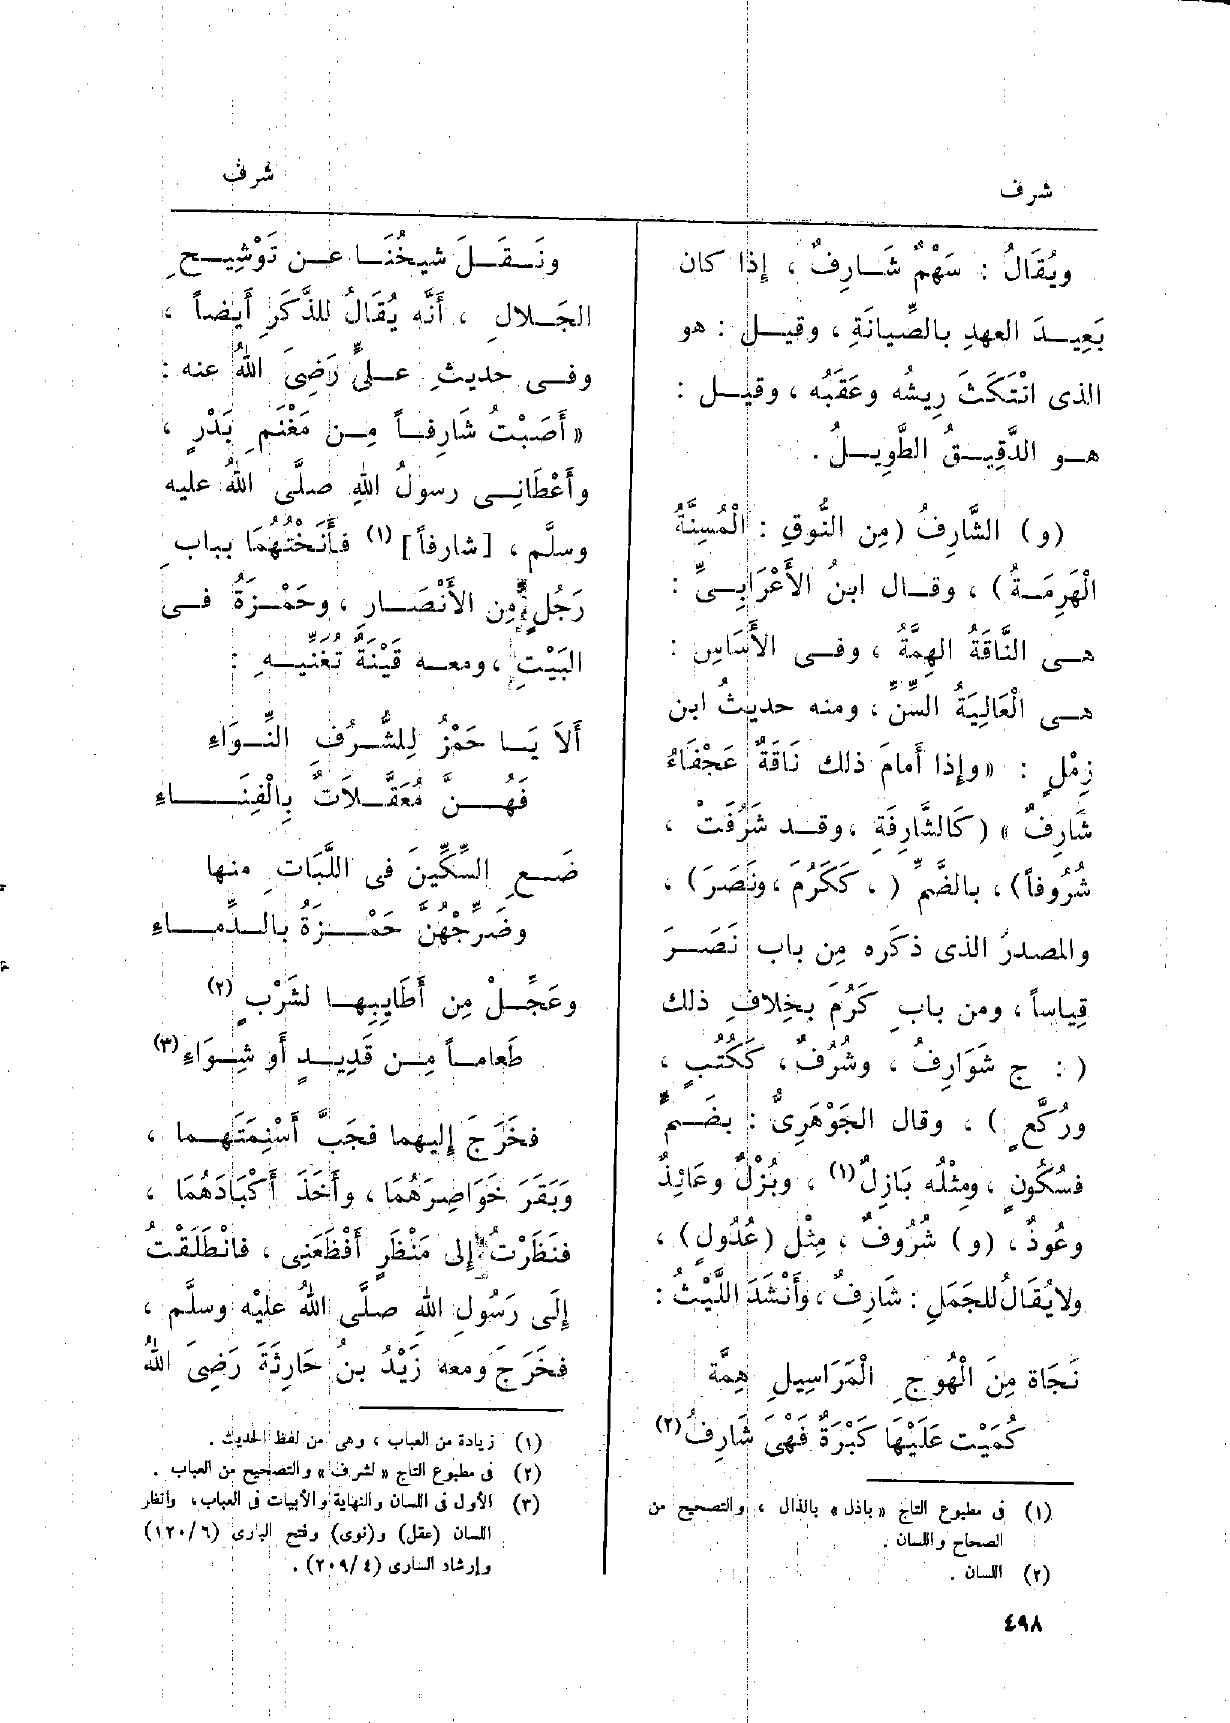 شرف
شرف
ويُقَالُ : سَهْمٌ شَارِفٌ ، إِذا كان
بَعِيدَ العهدِ بالصِّيانَةِ ، وقيل : هو
الذى انْتَكَثَ رِيشُه وعَقَبُه ، وقيل :
هو الدَّقِيقُ الطَّوِيلُ .
(و) الشَّارِفُ (مِن النُّوقِ : الْمُسِنَّةُ
الْهَرِمَةُ) ، وقال ابنُ الأَعْرَابِىِّ :
هى النَّاقَةُ الهِمَّةُ ، وفى الأَسَاسِ :
هى الْعَالِيَةُ السِّنِّ ، ومنه حديثُ ابن
زِمْلٍ : «وإذا أَمامَ ذلك نَاقَةٌ عَجْفَاءُ
شَارِفٌ » (كَالشَّارِفَةِ ، وقد شَرُفَتْ ،
شُرُوفاً) ، بالضَّمِّ ( ، كَكَرُمَ ، ونَصَرَ) ،
والمصدرُ الذى ذكَره مِن باب نَصَرَ
قِياساً ، ومن بابِ كَرُمَ بخِلافِ ذلك
( : ج شَوَارِفُ ، وشُرُفٌ ، كَكُتُبٍ ،
ورُكَّعٍ ) ، وقال الجَوْهَرِىُّ : بضَمٍّ
فسُكُونٍ ، ومِثْلُه بَازِلٌ (١) ، وبُزْلٌ وعَائِذٌ
وعُوذٌ ، (و) شُرُوفٌ ، مِثْل (عُدُولٍ) ،
ولايُقَالُ للجَمَلِ : شَارِفٌ ، وأَنْشَدَ اللَّيْثُ :
نَجَاة مِنَ الْهُوجِ الْمَرَاسِيلِ هِمَّة
كُمَيْت عَلَيْهَا كَبْرَةٌ فَهْىَ شَارِفُ (٢)
(١) فى مطبوع التاج «باذل» بالذال ، والتصحيح من
الصحاح واللسان .
(٢) اللسان .
٤٩٨
ونَقَلَ شيخُنَا عن تَوْشِيحِ
الجَلالِ ، أَنَّه يُقَالُ للذَّكَرِ أَيضاً ،
وفى حديثِ علىٍّ رَضِىَ اللهُ عنه :
«أَصَبْتُ شَارِفاً مِن مَغْنَمِ بَدْرٍ ،
وأَعْطَانِى رسولُ اللهِ صلَّى اللهُ عليه
وسلَّم ، [شارفاً] (١) فأَنَخْتُهُمَا ببابِ
رَجُلٍ مِن الأَنْصَارِ ، وحَمْزَةُ فى
البَيْتِ ، ومعه قَيْنَةٌ تُغَنِّيهِ :
أَلاَ يَا حَمْزُ لِلشُّرُفِ النِّوَاءِ
فَهُنَّ مُعَقَّلاَتٌ بِالْفِنَاءِ
ضَعِ السِّكِّينَ فى اللَّبَاتِ منها
وضَرِّجْهُنَّ حَمْزَةُ بالدِّمَاءِ
وعَجِّلْ مِن أَطَايِبِها لشَرْبٍ (٢)
طَعاماً مِن قَدِيدٍ أَو شِوَاءِ (٣)
فخَرَجَ إِليهما فجَبَّ أَسْنِمَتَهما ،
وَبَقَرَ خَوَاصِرَهُمَا ، وأَخَذَ أَكْبَادَهُمَا ،
فنَظَرْتُ إِلى مَنْظَرٍ أَفْظَعَنِى ، فانْطَلَقْتُ
إِلَى رَسُولِ اللهِ صلَّى اللهُ عليْه وسلَّم ،
فخَرَجَ ومعه زَيْدُ بنُ حَارِثَةَ رَضِىَ اللهُ
(١) زيادة من العباب ، وهى من لفظ الحديث .
(٢) فى مطبوع التاج «لشرف» والتصحيح من العباب .
(٣) الأول فى اللسان والنهاية والأبيات فى العباب ، وانظر
اللسان (عقل) و(نوى) وفتح البارى (٦/ ١٢٠)
وإرشاد السارى (٤/ ٢٠٩) .